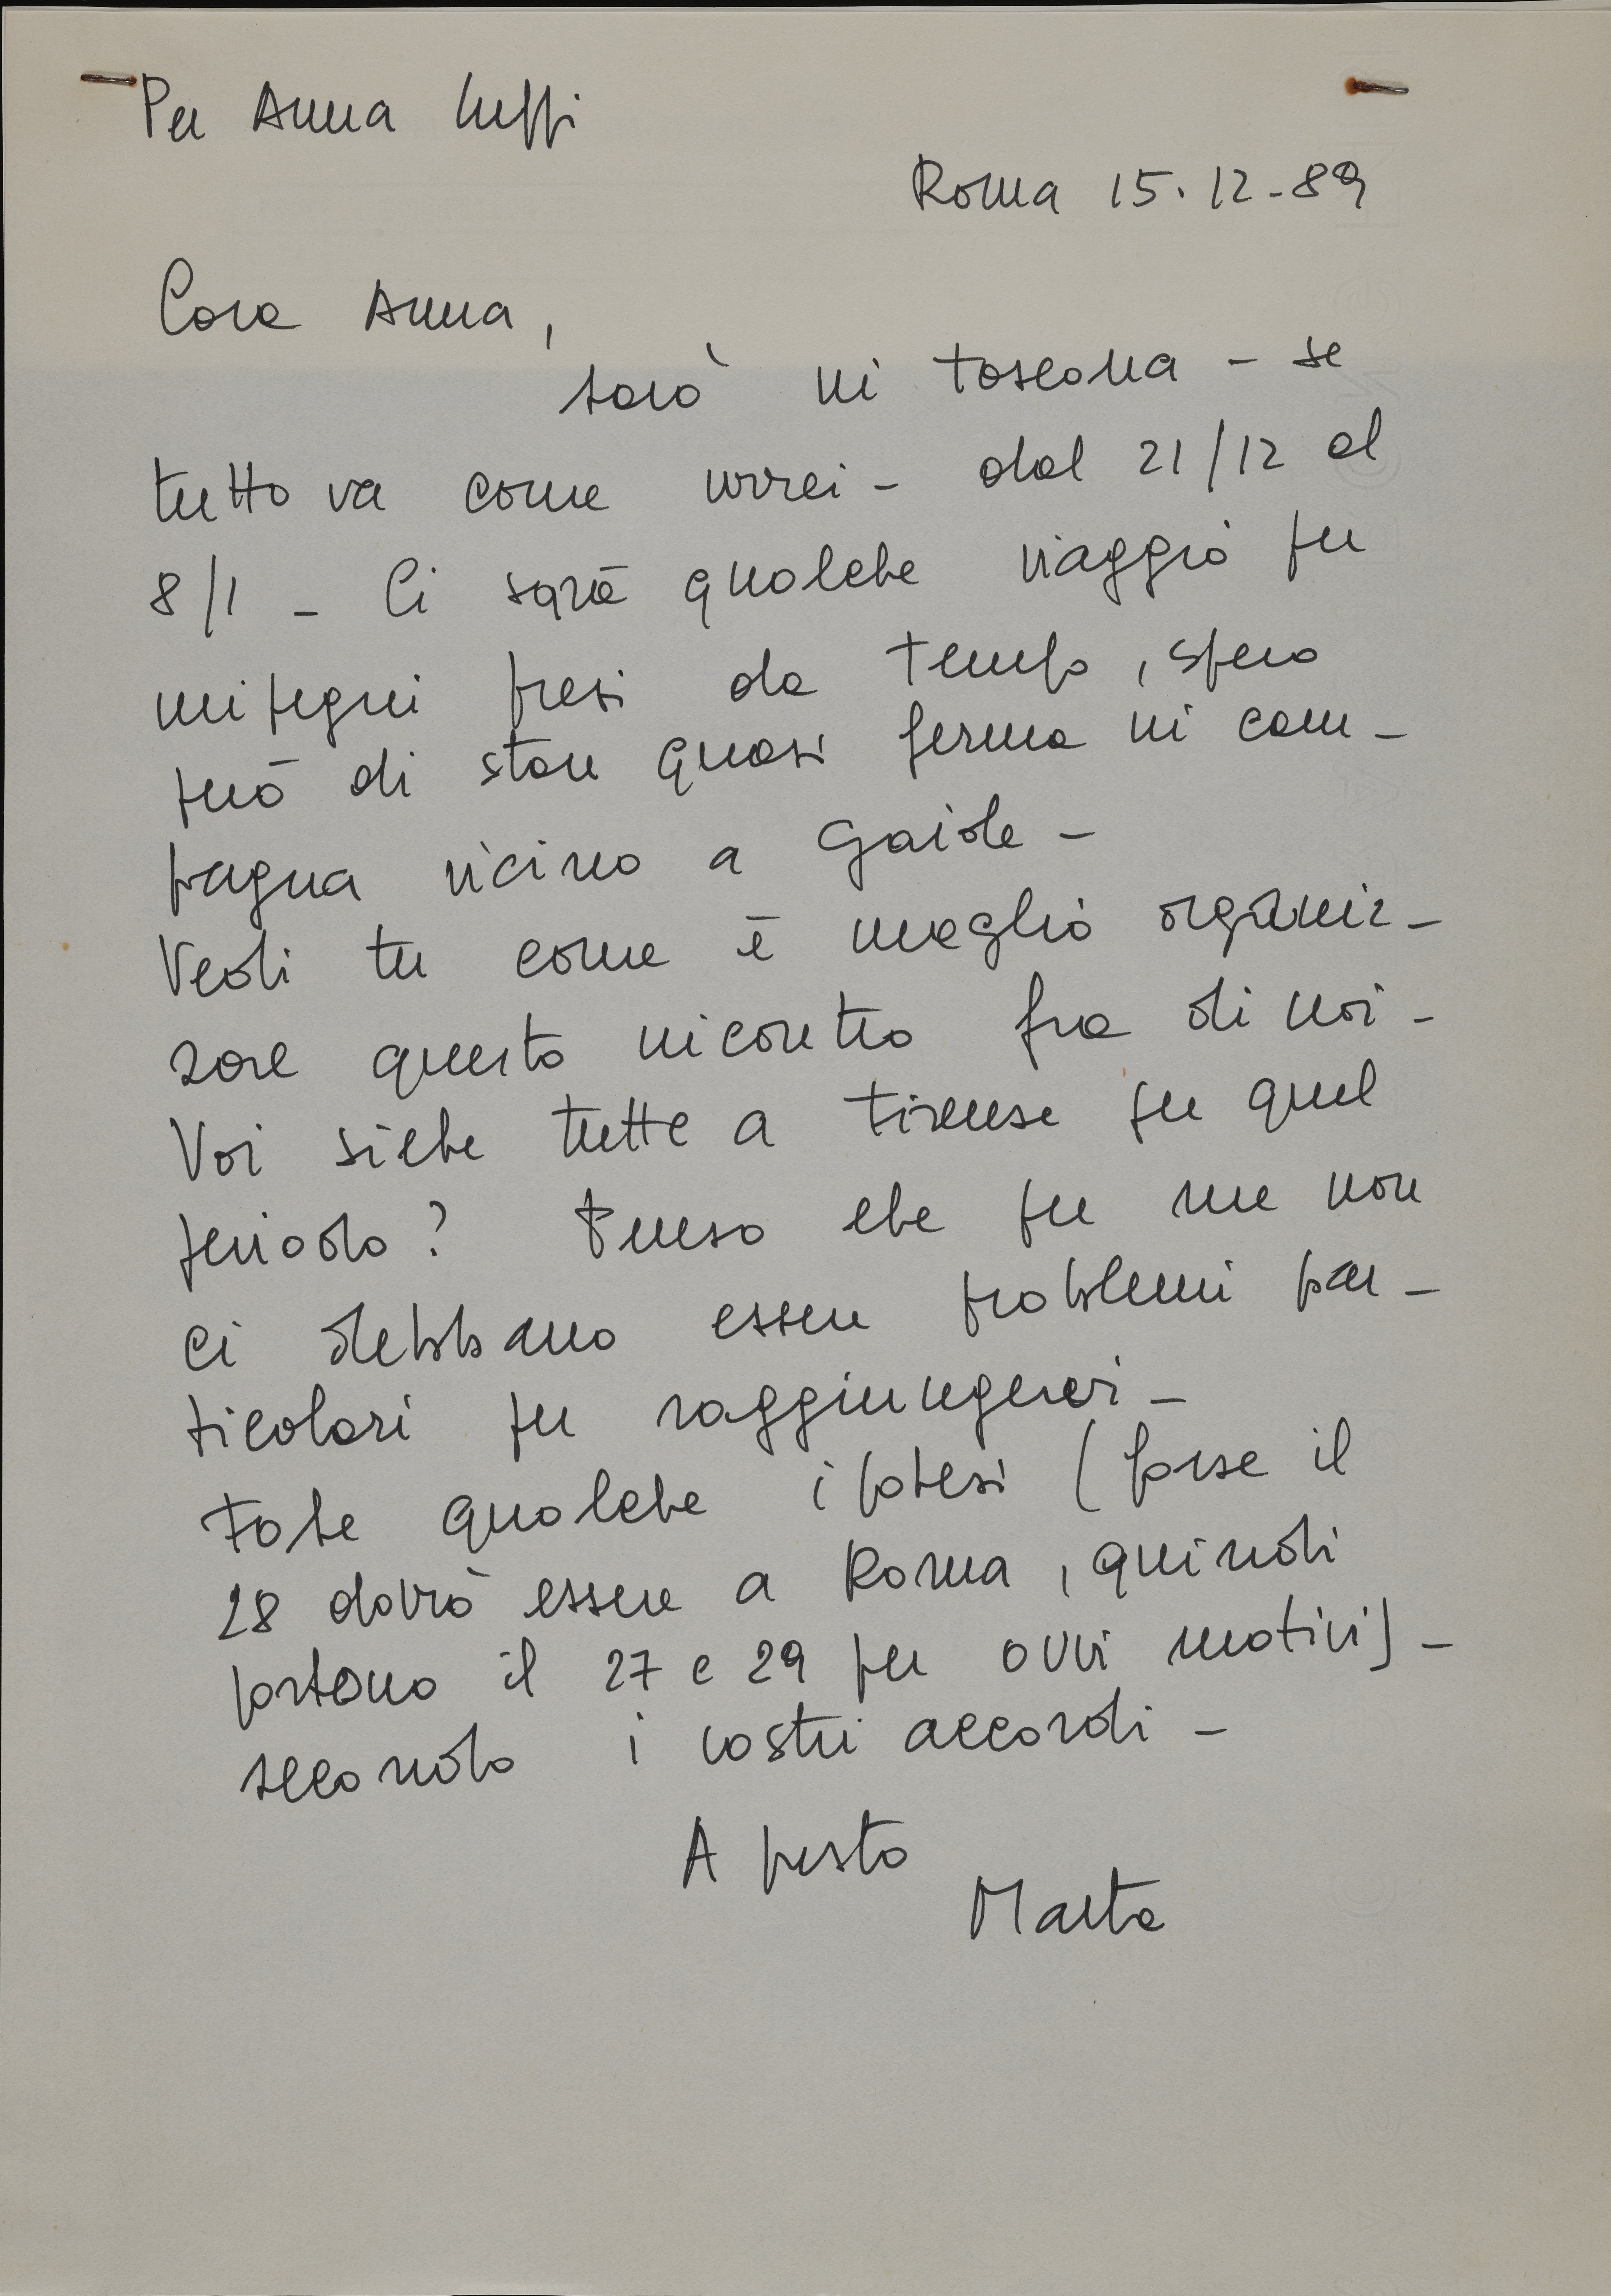 Per Anna Luppi
Roma 15.12-89
Cara Anna,
sarò in toscana - se
tutto va come vorrei - dal 21/12 al
8/1 - Ci sarà qualche viaggio per
impegni presi da tempo, spero
però di stare quasi ferma in cam-
pagna vicino a Gaiole -
Vedi tu come è meglio organiz-
zare questo incontro fra di noi -
Voi siete tutte a Firenze per quel
periodo? Penso che per me non
ci debbano essere problemi par-
ticolari per raggiungervi -
Fate qualche ipotesi (forse il
28 dovrò essere a Roma, quindi
saltano il 27 e 29 per ovvi motivi) -
secondo i vostri accordi -
A presto
Marta